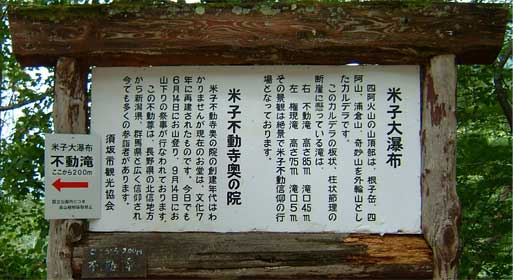 米子大瀑布
四阿火山の山頂部は、根子岳、四
阿山、浦倉山、奇妙山を外輪山とし
たカルデラです。
このカルデラの板状、柱状節理の
断崖に懸っている滝は、
右 不動滝 高さ85m 滝口4.5m
左 権現滝 高さ75m 滝口5m
その景観は絶景で米子不動信仰の行
場となっております。
米子不動寺奥の院
米子不動寺奥の院の創建年代はわ
かりませんが現在のお堂は、文化7
年に再建されたものです。今日でも
6月14日にお山登り、9月14日にお
山下りの祭事が行なわれております。
この不動尊は、長野県の北信地方
から新潟県、群馬県と広く信仰され
今でも多くの参詣者があります。
須坂市観光協会
米子大瀑布
不動滝
ここから200m
ここから200m